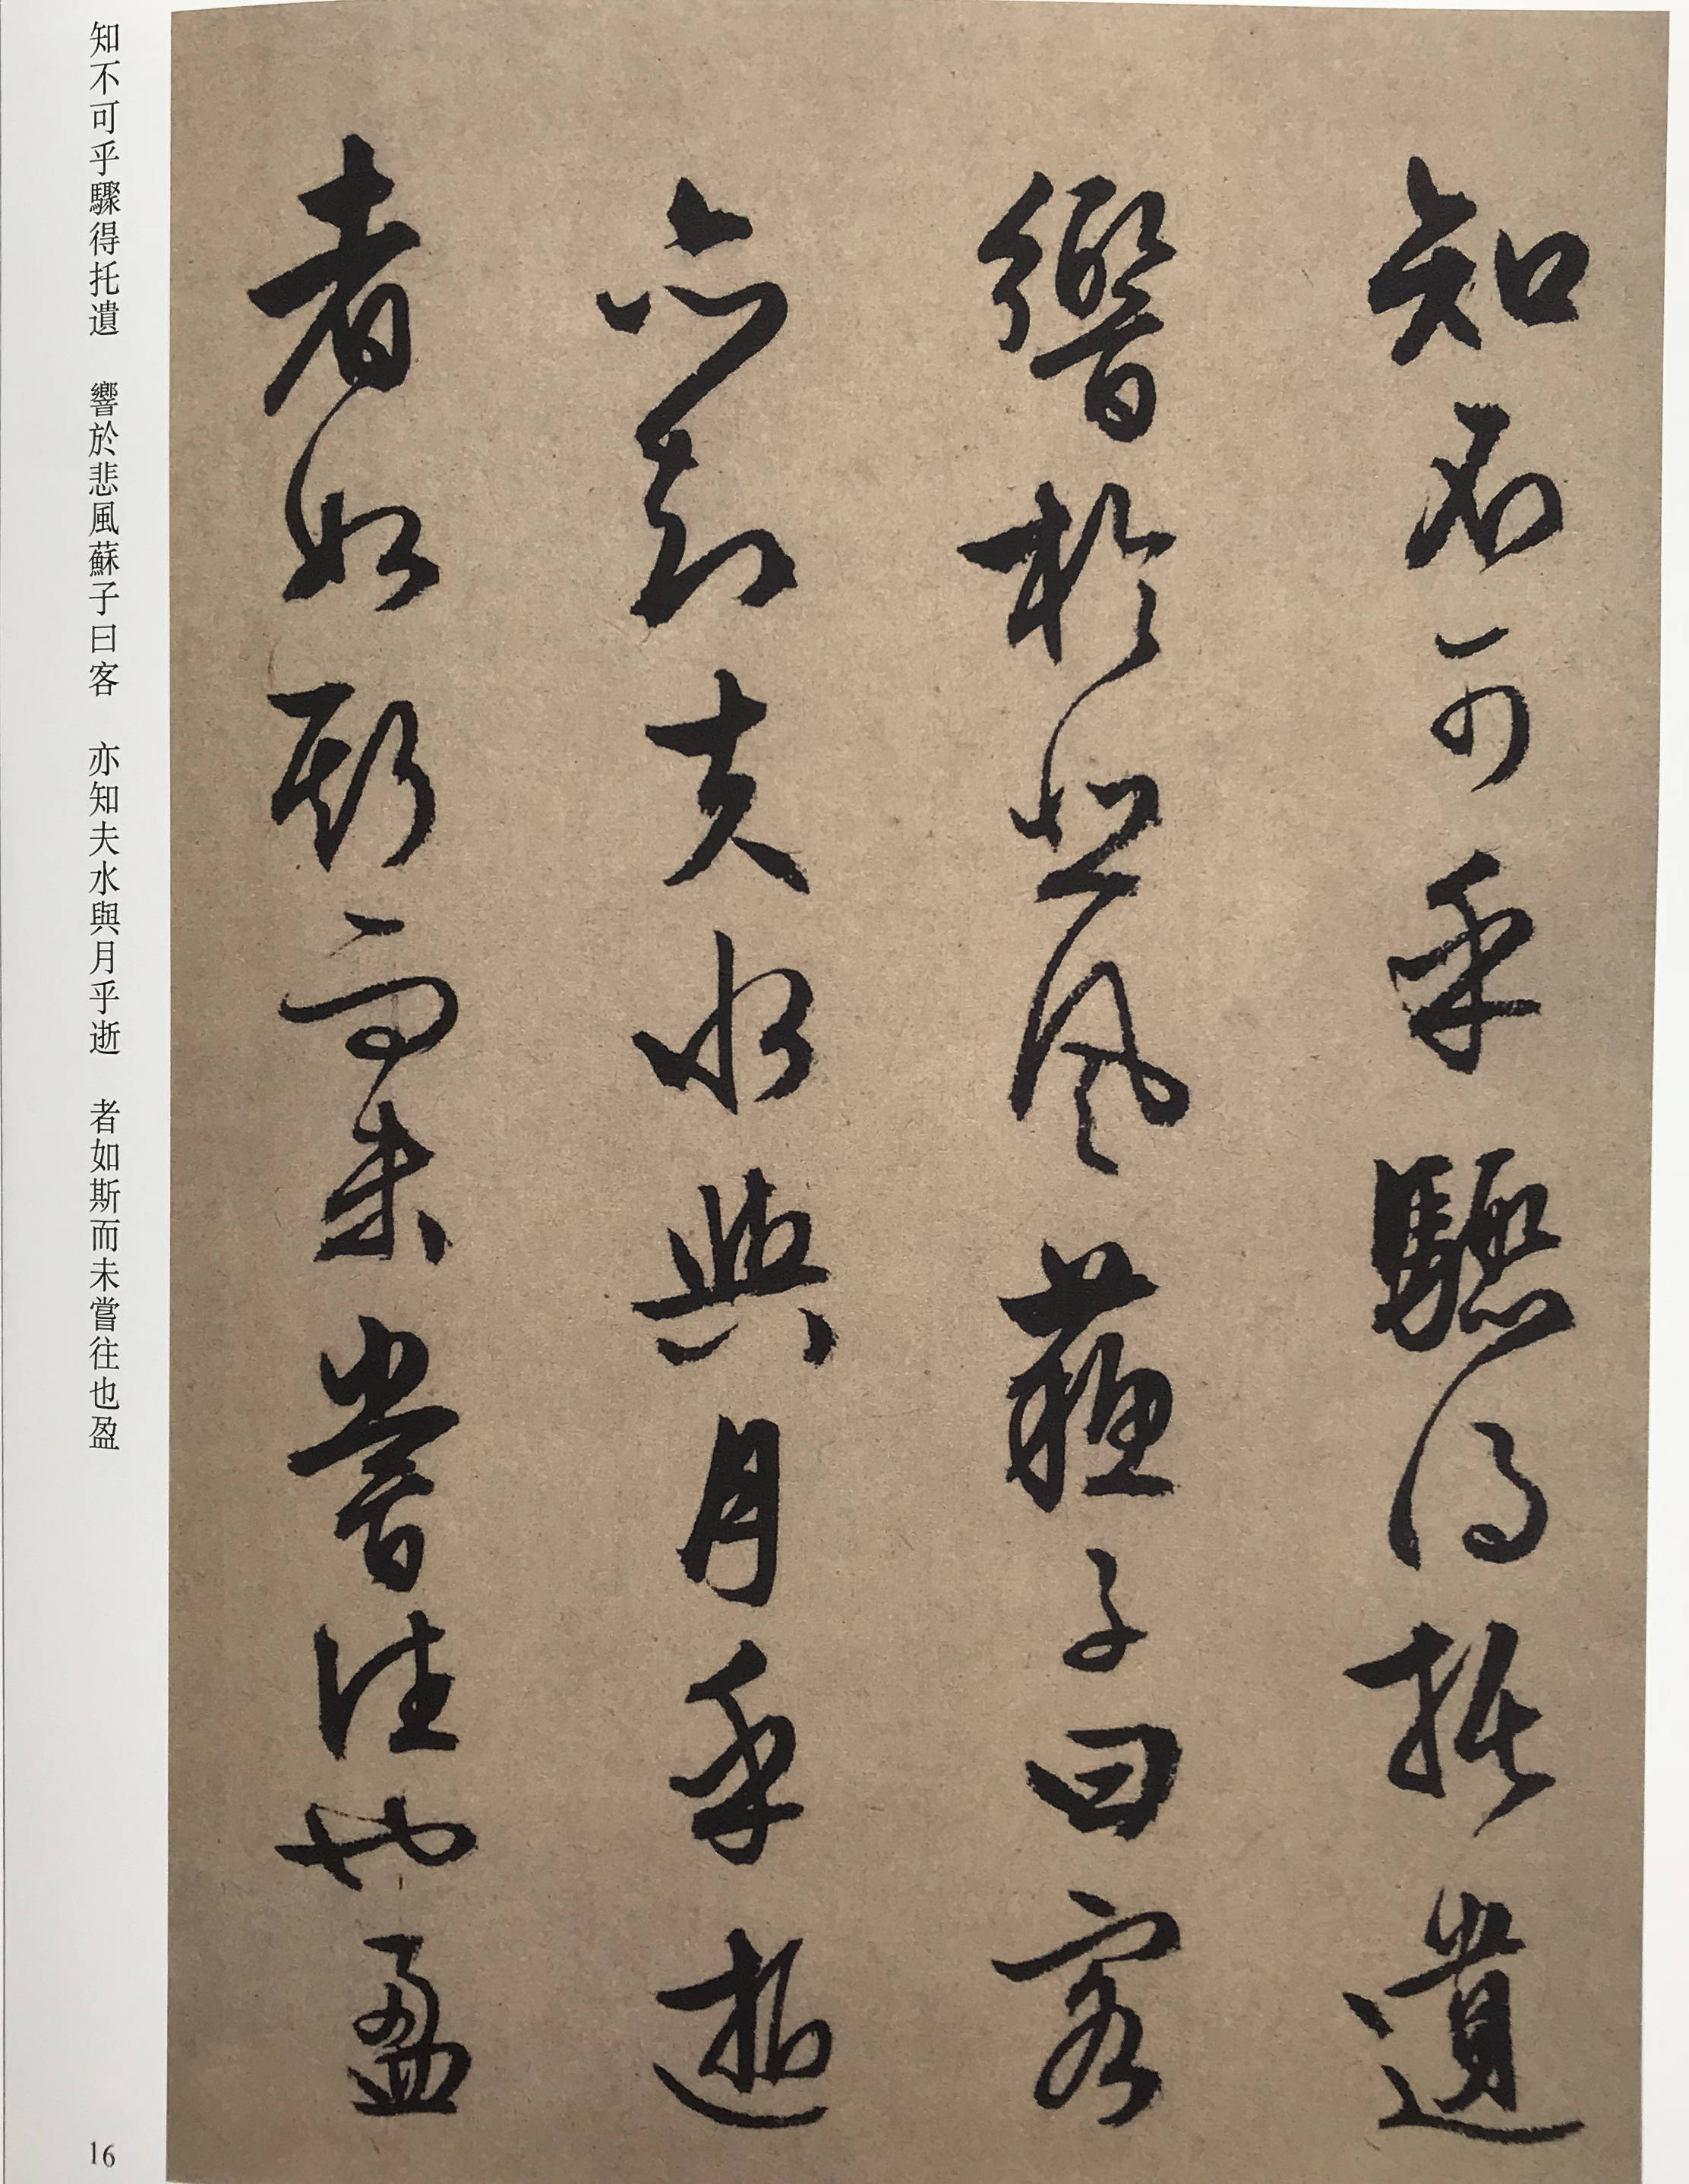 知不可乎驟得托遺
響於悲風蘇子曰客
亦知夫水與月乎逝
者如斯而未嘗往也盈
知不可乎驟得托遺 響於悲風蘇子曰客 亦知夫水與月乎逝 者如斯而未嘗往也盈
16